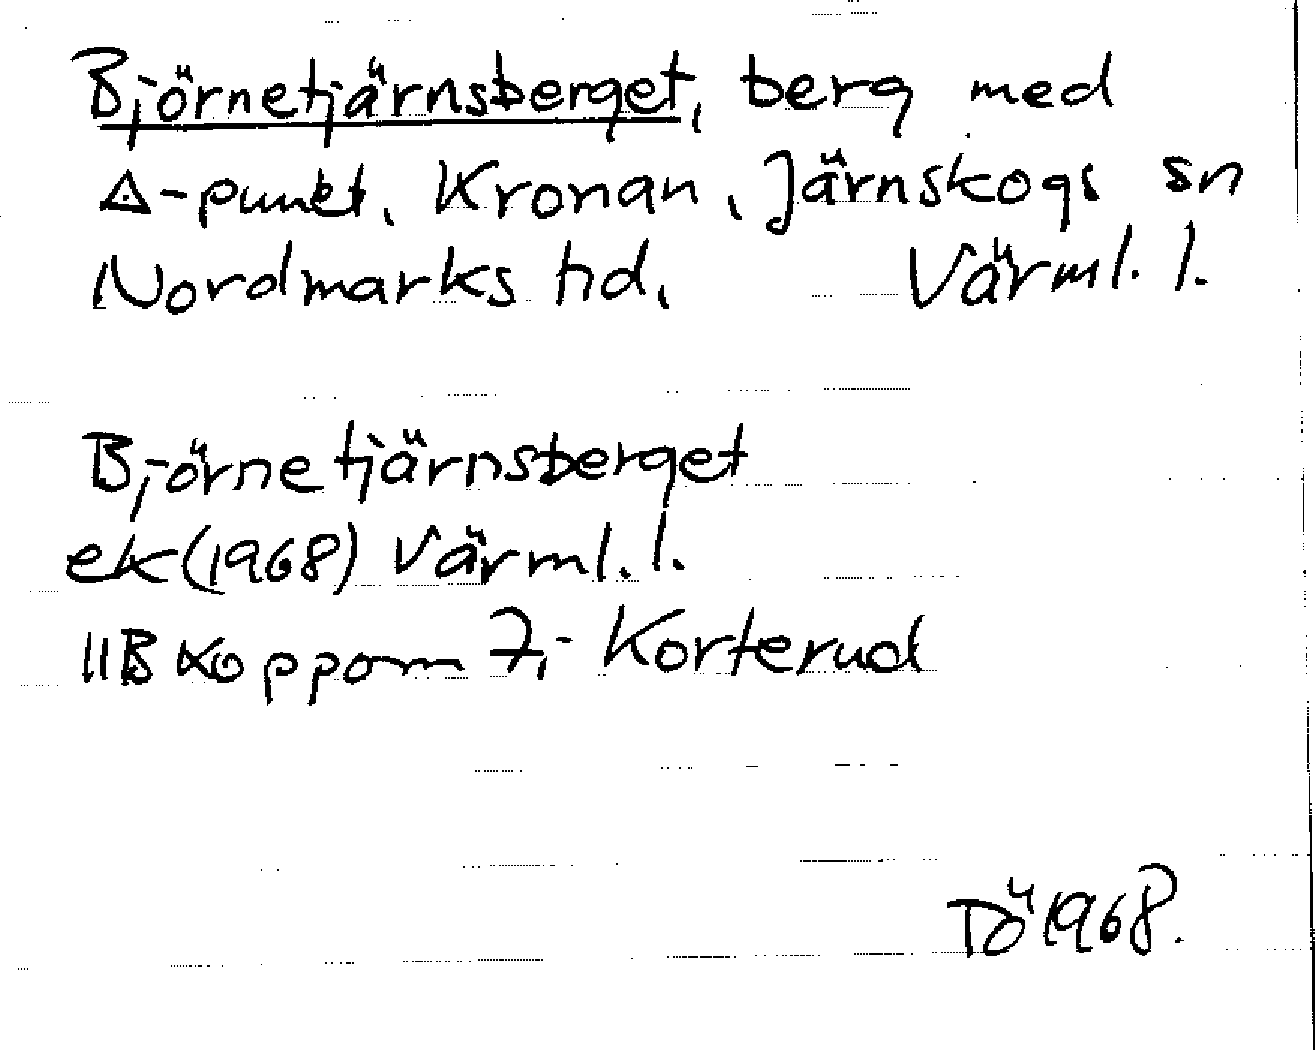 Björnetjärnsberget, berg med
△-punkt, Kronan, Järnskogs sn
Nordmarks hd, Värml. l.
Björnetjärnsberget
ek (1968) Värml. l.
11B Koppom 7i Korterud
TÖ 1968.